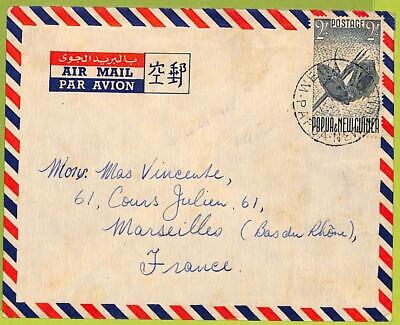 بالبريد الجوي
AIR MAIL
PAR AVION
空郵
2/- POSTAGE 2/-
PAPUA & NEW GUINEA
Mons. Mas Vincente,
61, Cours Julien, 61,
Marseilles (Bas du Rhône),
France.